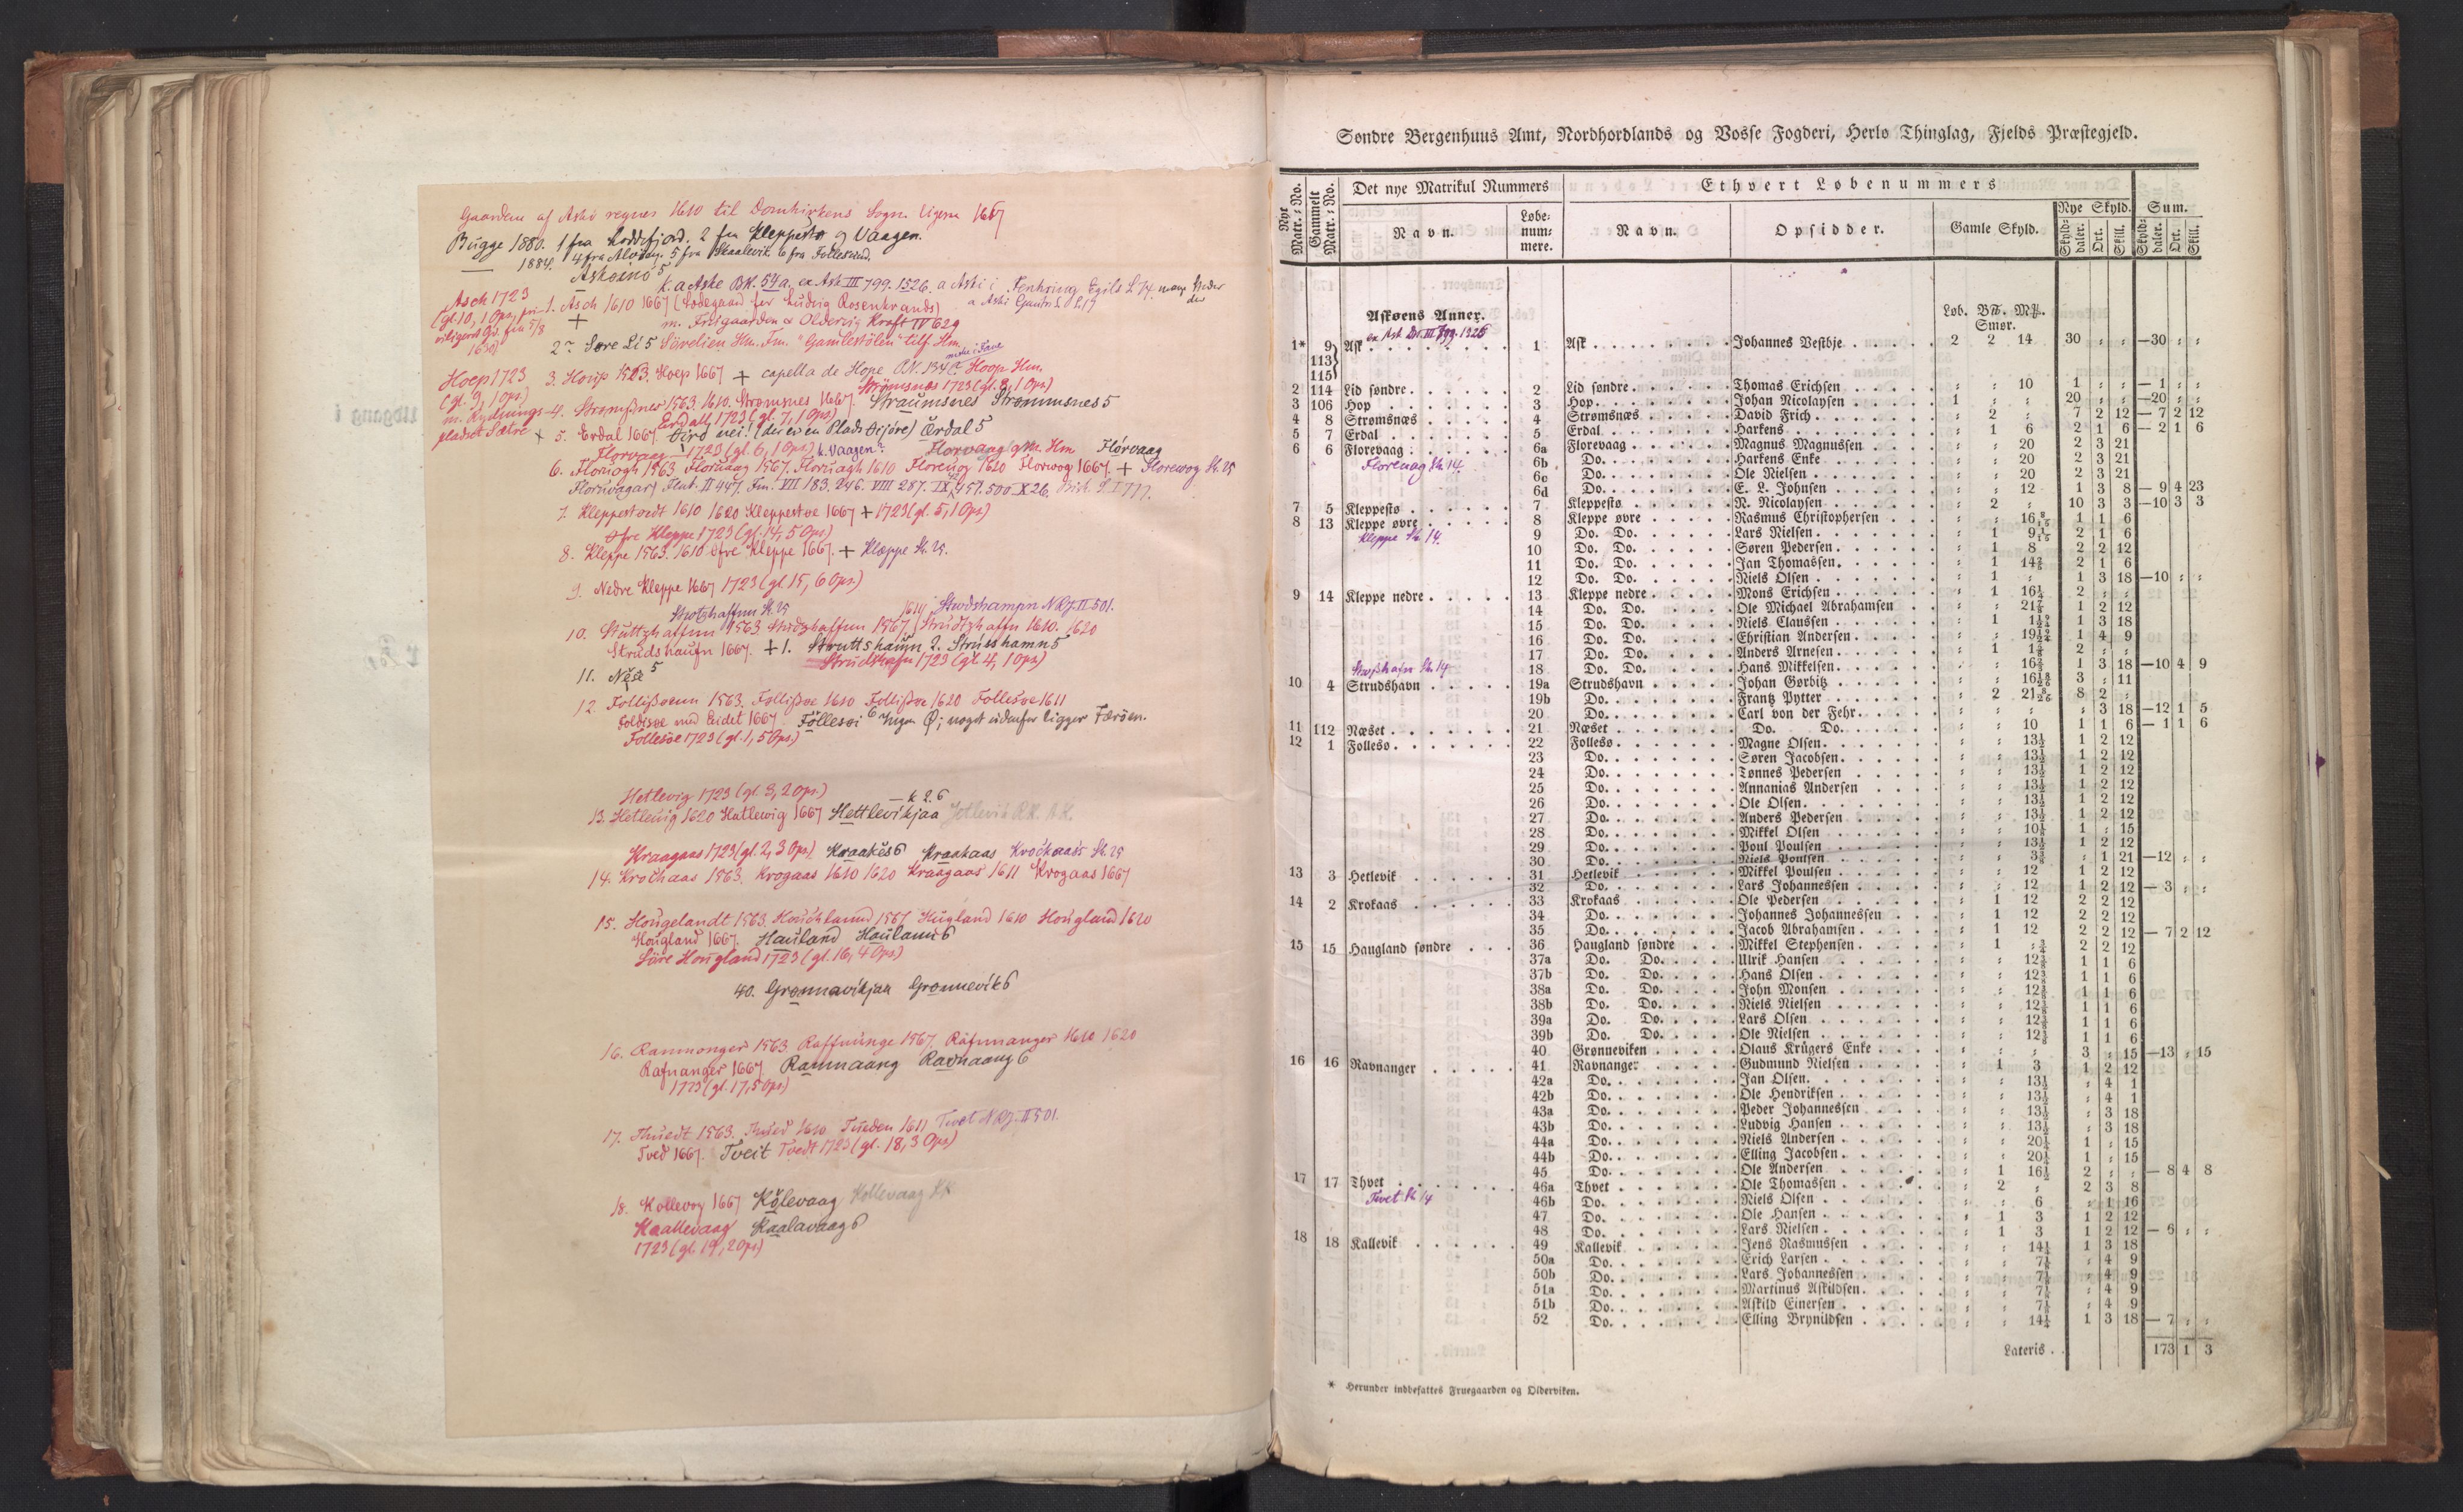 Gaardene af Askø regnes 1610 til Domkirkens Sogn. ligesaa 1667
Bugge 1880. 1 fra Loddefjord. 2 fra Kleppestø og Vaagen.
1884. 4 fra Alvøen. 5 fra Skaalevik. 6 fra Follesund.
Askoenö 5
k. a Aske BK. 54a. ex Ask III 799. 1526. a Aski i Fenhring Egils S.
Asch 1723
(gl. 10, 1 Ops.
1. Asch 1610 1667 (Ladegaard for Ludvig Rosenkrands)
m. Friigaarden & Oldervig Kraft IV 629
2. Søre Li 5 Sörelien Hm. Fm. "Gamlestölen" tilf. Hm.
Hoep 1723
(gl. 9, 1 Ops.)
m. Rydnings-
pladset Sætre
3. Houp 1563. Hoep 1667 + capella de Hope Hoop Hm.
Strömsnæs 1723 (gl. 8, 1 Ops)
4. Strømsnes 1563. 1610. Strømsnes 1667. Straumsnes Strommsnes 5
Erdall 1723 (gl. 7, 1 Ops)
5. Erdal 1667. Ærdal 5
Florvaag 1723 (gl. 6, 1 Ops) k. Vaagen? Florvaag Hm. Flórvaag
6. Floruogh 1563 Floruaag 1567. Floruagh 1610 Floreuog 1620 Florwog 1667. + Florewog St. 25
Floruvagar Flat. II 447. Fm. VII 183. 246. VIII 287. IX 457. 500 X 26.
7. Kleppestoedt 1610 1620 Kleppestoe 1667 + 1723 (gl. 5, 1 Ops)
Øfre Kleppe 1723 (gl. 14, 5 Ops)
8. Kleppe 1563. 1610 Øfre Kleppe 1667. + Klæppe St. 25.
9. Nedre Kleppe 1667 1723 (gl 15, 6 Ops.)
Strotzhaffnn St. 25 Strodshampn NRJ. II 501.
10. Stuttzhaffnn 1563 Strudzhaffun 1567 Strudtzhaffn 1610. 1620
Strudshaufn 1667. + 1. Struttshamn 2. Strusshamn 5
Strudshafn 1723 (gl. 4, 1 Ops)
11. Nese 5
12. Follissøenn 1563. Follissøe 1610 Follissøe 1620 Follesøe 1611
Foldisøe med Eidet 1667. Föllesøi 6 Ingen Ø; noget udenfor ligger Færöen.
Follesøe 1723 (gl. 1, 5 Ops.)
Hetlevig 1723 (gl. 3, 2 Ops.)
13. Hetleuig 1620 Hatlewig 1667 Hettlevikjaa
Kraagaas 1723 (gl. 2, 3 Ops) Kraakås 6 Kraakaas Krockaass St. 25
14. Krochaas 1563. Krogaas 1610 1620 Kraagaas 1611 Krogaas 1667
15. Hougelandt 1563. Houchlannd 1567 Hugland 1610 Hougland 1620
Hougland 1667. Hauland Haulann 6
Söre Hougland 1723 (gl. 16, 4 Ops.)
40. Grønnavikjaa Grønnevik 6
16. Ramnonger 1563 Raffnunge 1567 Rafnnanger 1610 1620
Rafnanger 1667 Ramnaang Ravnaang 6
1723 (gl. 17, 5 Ops)
17. Thuedt 1563. Thued 1610 Tueden 1611 Tvet NRJ. II 501.
Tved 1667. Tveit Tvedt 1723 (gl. 18, 3 Ops)
18. Kollevog 1667 Kålevaag Kollevaag
Kaallevaag Kaalavaag 6
1723 (gl. 19, 2 Ops)
Søndre Bergenhuus Amt, Nordhordlands og Vosse Fogderi, Herlø Thinglag, Fjelds Præstegjeld.
Nye Matr.-No. Gammelt Matr.-No. Det nye Matrikul Nummers Ethvert Løbenummers
Navn. Løbe-nummere. Navn. Opsidder. Gamle Skyld. Nye Skyld. Sum.
Skylddaler. Ort. Skill. Skylddaler. Ort. Skill.
Askøens Annex. Løb. B℔. M℔.
Smør.
ex Ask Dn. III 799. 1526
1* 9 Ask 1 Ask Johannes Vestbye 2 2 14 30 : : —30 : :
113
115
2 114 Lid søndre 2 Lid søndre Thomas Erichsen : : 10 1 : : — 1 : :
3 106 Hop 3 Hop Johan Nicolaysen 1 : : 20 : : —20 : :
4 8 Strømsnæs 4 Strømsnæs David Frich : 2 : 7 2 12 — 7 2 12
5 7 Erdal 5 Erdal Harkens : 1 6 2 1 6 — 2 1 6
6 6 Florevaag 6a Florevaag Magnus Magnussen : : 20 2 3 21
Florevaag St. 14. 6b Do. Harkens Enke : : 20 2 3 21
6c Do. Ole Nielsen : : 20 2 3 21
6d Do. E. L. Johnsen : : 12 1 3 8 — 9 4 23
7 5 Kleppestø 7 Kleppestø N. Nicolaysen : 2 : 10 3 3 —10 3 3
8 13 Kleppe øvre 8 Kleppe øvre Rasmus Christophersen : : 16 1 1 6
Kleppe St. 14. 9 Do. Do. Lars Nielsen : 1 9 2 1 6
10 Do. Do. Søren Pedersen : 1 8 2 2 12
11 Do. Do. Jan Thomassen : 1 14 2 1 6
12 Do. Do. Niels Olsen : 1 : 1 3 18 —10 : :
9 14 Kleppe nedre 13 Kleppe nedre Mons Erichsen : 1 16 2 : :
14 Do. Do. Ole Michael Abrahamsen : : 21 1 2 12
15 Do. Do. Niels Claussen : 1 1 1 3 18
16 Do. Do. Christian Andersen : : 19 1 4 9
17 Do. Do. Anders Arnesen : 1 1 2 : :
Strosshafn St. 14 18 Do. Do. Hans Mikkelsen : : 16 1 3 18 —10 4 9
10 4 Strudshavn 19a Strudshavn Johan Gørbitz : : 16 3 : 11
19b Do. Frantz Pytter : 2 21 8 2 :
20 Do. Carl von der Fehr : : : : 3 18 —12 1 5
11 112 Næset 21 Næset Do. Do. : : 10 1 1 6 — 1 1 6
12 1 Follesø 22 Follesø Magne Olsen : : 13½ 1 2 12
23 Do. Søren Jacobsen : : 13½ 1 2 12
24 Do. Tønnes Pedersen : : 13½ 1 2 12
25 Do. Annanias Andersen : : 13½ 1 2 12
26 Do. Ole Olsen : : 13½ 1 2 12
27 Do. Anders Pedersen : : 13½ 1 2 12
28 Do. Mikkel Olsen : : 10 1 : 15
29 Do. Poul Poulsen : : 13½ 1 2 12
30 Do. Niels Poulsen : : 3 : 1 21 —12 : :
13 3 Hetlevik 31 Hetlevik Mikkel Poulsen : : 12 1 2 12
32 Do. Lars Johannessen : : 12 1 2 12 — 3 : :
14 2 Krokaas 33 Krokaas Ole Pedersen : 1 12 2 2 12
34 Do. Johannes Johannessen : 1 12 2 2 12
35 Do. Jacob Abrahamsen : 1 12 2 2 12 — 7 2 12
15 15 Haugland søndre 36 Haugland søndre Mikkel Stephensen : 1 : ¾ 2 2 12
37a Do. Do. Ulrik Hansen : : 12 1 1 6
37b Do. Do. Hans Olsen : : 12 1 1 6
38a Do. Do. John Monsen : : 12 1 1 6
38b Do. Do. Niels Nielsen : : 12 1 1 6
39a Do. Do. Lars Olsen : : 12 1 1 6
39b Do. Do. Ole Nielsen : : 12 1 1 6
40 Grønneviken Olaus Krügers Enke : : : 3 : 15 —13 : 15
16 16 Ravnanger 41 Ravnanger Gudmund Nielsen : 1 3 1 2 12
42a Do. Jan Olsen : : 13½ : 4 1
42b Do. Ole Hendriksen : : 13½ : 4 1
43a Do. Peder Johannessen : : 13½ : 3 18
43b Do. Ludvig Hansen : : 13½ : 3 18
44a Do. Niels Andersen : : 20¼ 1 : 15
44b Do. Elling Jacobsen : : 20¼ 1 : 15
45 Do. Ole Andersen : 1 16½ 2 : : — 8 4 8
17 17 Thvet 46a Thvet Ole Thomassen : 2 : 2 3 8
Tvet St. 14 46b Do. Niels Olsen : : 6 : 1 16
47 Do. Ole Hansen : 1 3 1 2 12
48 Do. Lars Nielsen : 1 3 1 2 12 — 6 : :
18 18 Kallevik 49 Kallevik Jens Rasmussen : : 14¼ 1 3 18
50a Do. Erich Larsen : : 7⅛ : 4 9
50b Do. Lars Johannessen : : 7⅛ : 4 9
51a Do. Martinus Askildsen : : 7⅛ : 4 9
51b Do. Askild Einersen : : 7⅛ : 4 9
52 Do. Elling Brynildsen : : 14¼ 1 3 18 — 7 : :
Lateris . 173 1 3
* Herunder indbefattes Fruegaarden og Olderviken.